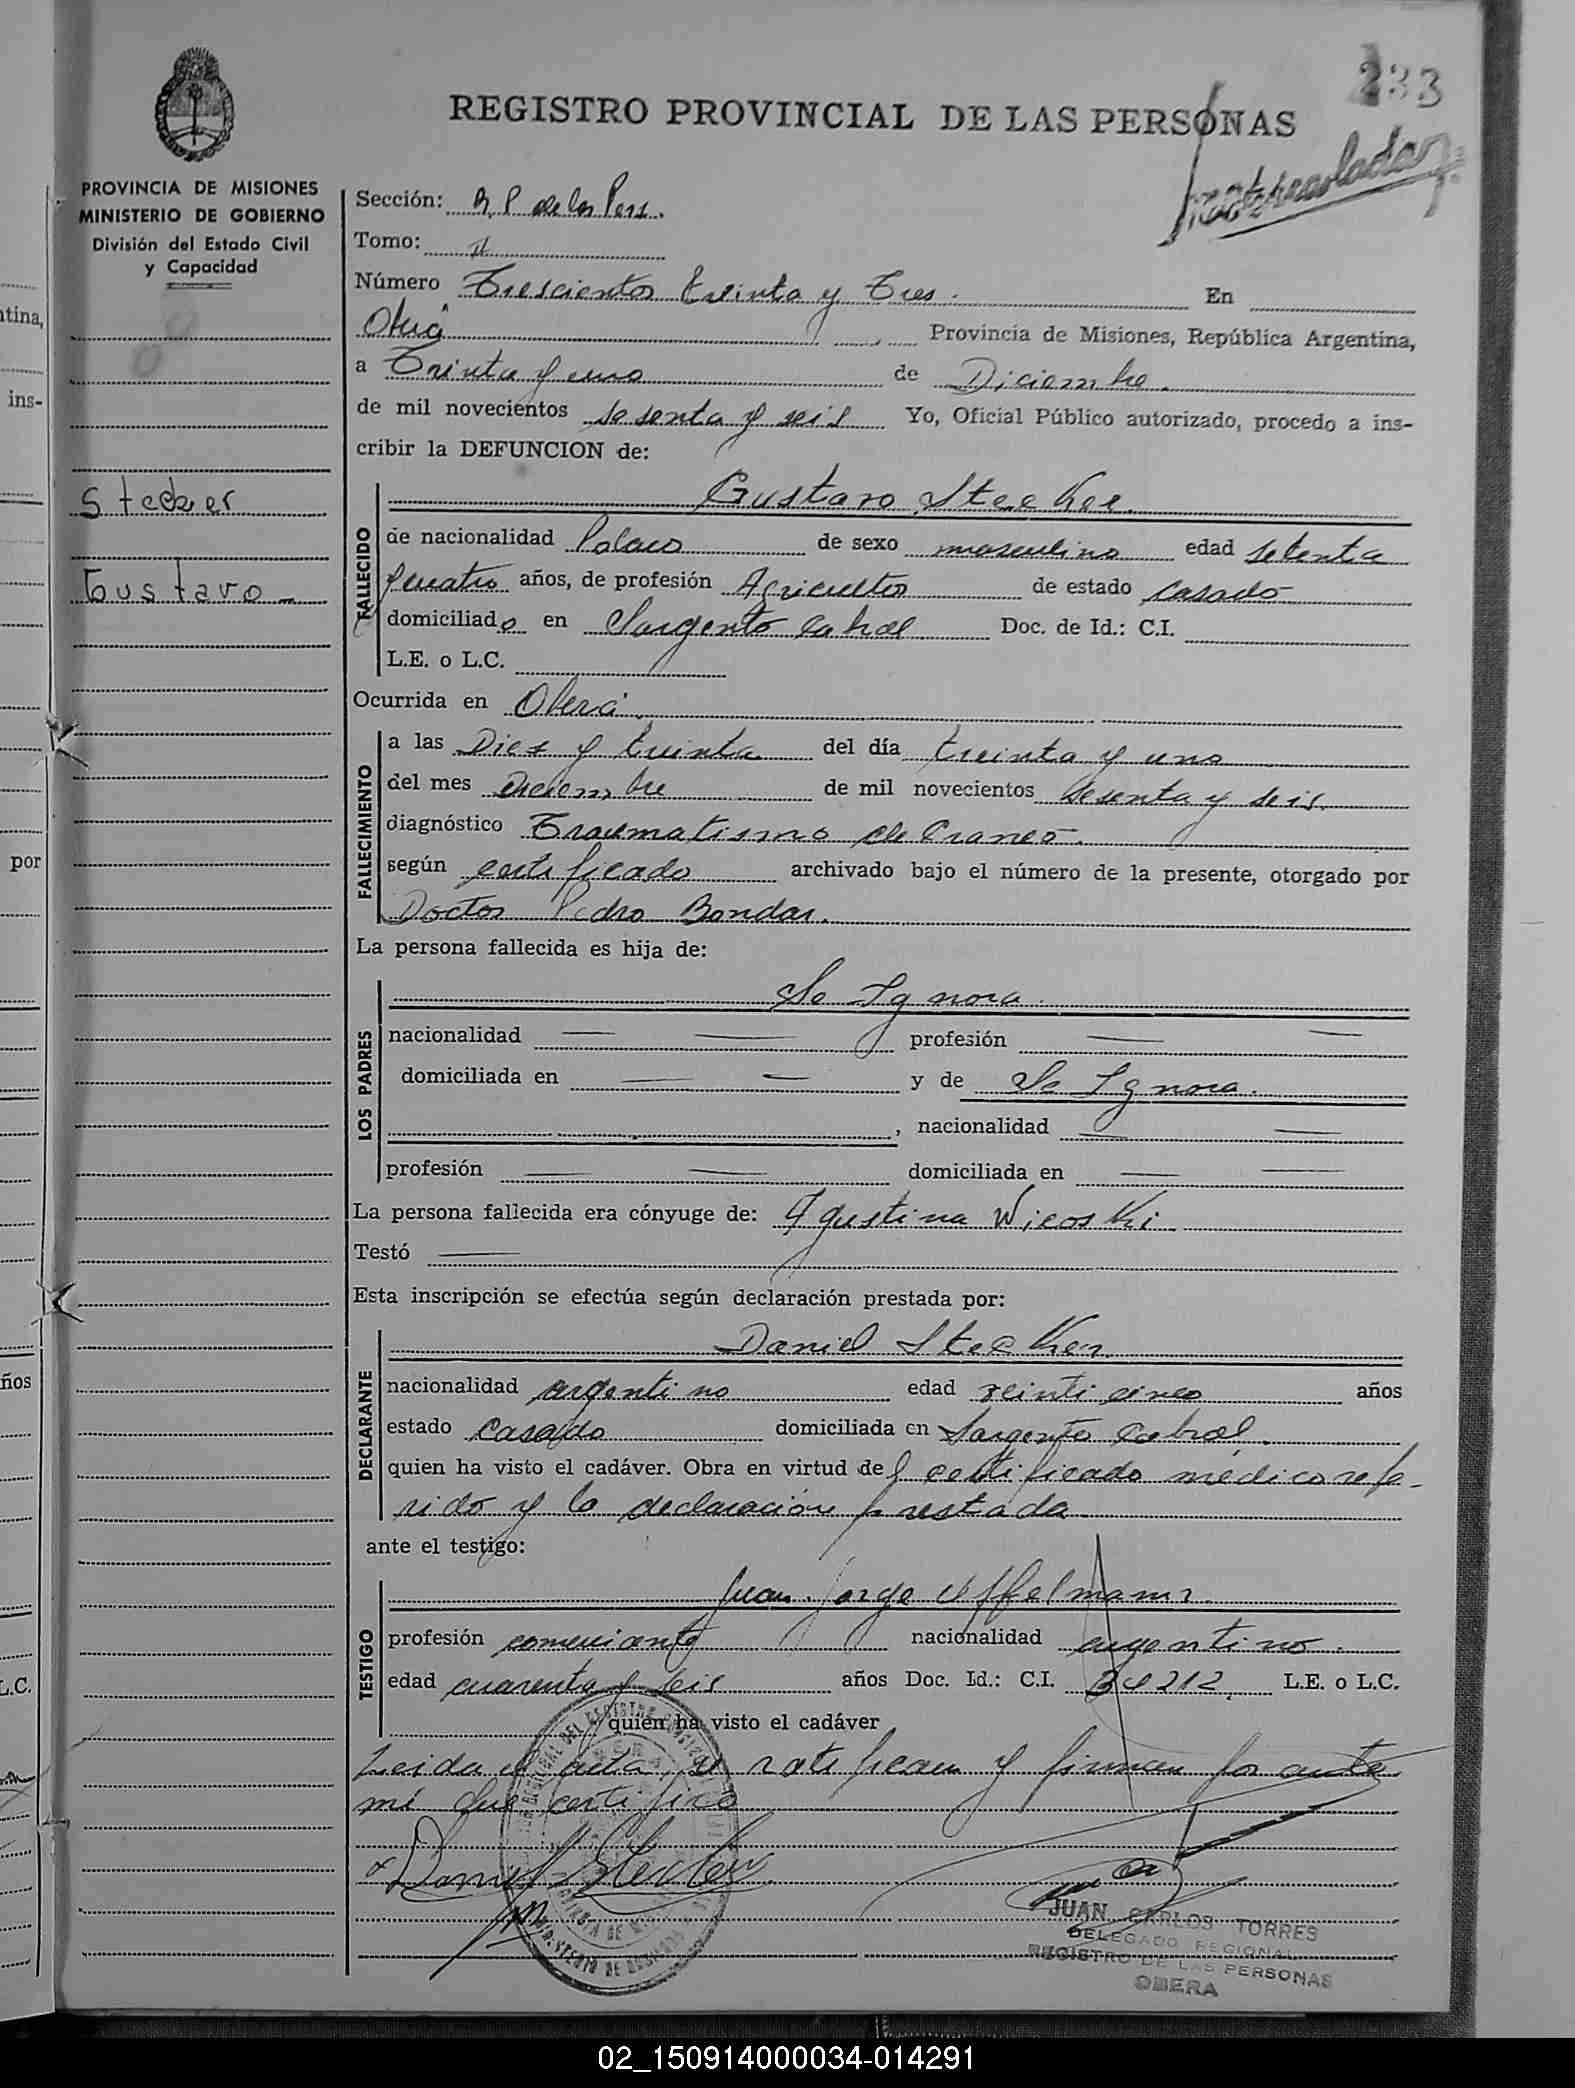 233
REGISTRO PROVINCIAL DE LAS PERSONAS
PROVINCIA DE MISIONES
MINISTERIO DE GOBIERNO
División del Estado Civil
y Capacidad
Stecker
Gustavo
Sección: R. P. de las Pers.
Tomo: II
Número Trescientos treinta y Tres. En
Oberá Provincia de Misiones, República Argentina,
a Treinta y uno de Diciembre.
de mil novecientos sesenta y seis Yo, Oficial Público autorizado, procedo a ins-
cribir la DEFUNCION de:
FALLECIDO
Gustavo Stecker.
de nacionalidad Polaco de sexo masculino edad setenta
y cuatro años, de profesión Agricultor de estado casado
domiciliado en Sargento Cabral Doc. de Id.: C.I.
L.E. o L.C.
Ocurrida en Oberá.
FALLECIMIENTO
a las Diez y treinta del día treinta y uno
del mes Diciembre de mil novecientos sesenta y seis.
diagnóstico Traumatismo de Craneo.
según certificado archivado bajo el número de la presente, otorgado por
Doctor Pedro Bondar.
La persona fallecida es hija de:
LOS PADRES
Se Ignora.
nacionalidad — — profesión — —
domiciliada en — — y de Se Ignora.
, nacionalidad — —
profesión — — domiciliada en — —
La persona fallecida era cónyuge de: Agustina Wicoski.
Testó —
Esta inscripción se efectúa según declaración prestada por:
DECLARANTE
Daniel Stecker.
nacionalidad argentino edad veinticinco años
estado casado domiciliada en Sargento Cabral.
quien ha visto el cadáver. Obra en virtud del certificado médico refe-
rido y la declaración prestada.
ante el testigo:
TESTIGO
Juan Jorge Uffelmann.
profesión comerciante nacionalidad argentino.
edad cuarenta y seis años Doc. Id.: C.I. L.E. o L.C.
quien ha visto el cadáver
Leida el acta, se ratifican y firman por ante
mi que certifico
Daniel Stecker
JUAN CARLOS TORRES
DELEGADO REGIONAL
REGISTRO DE LAS PERSONAS
OBERA
tina,
ins-
por
ños
L.C.
02_150914000034-014291